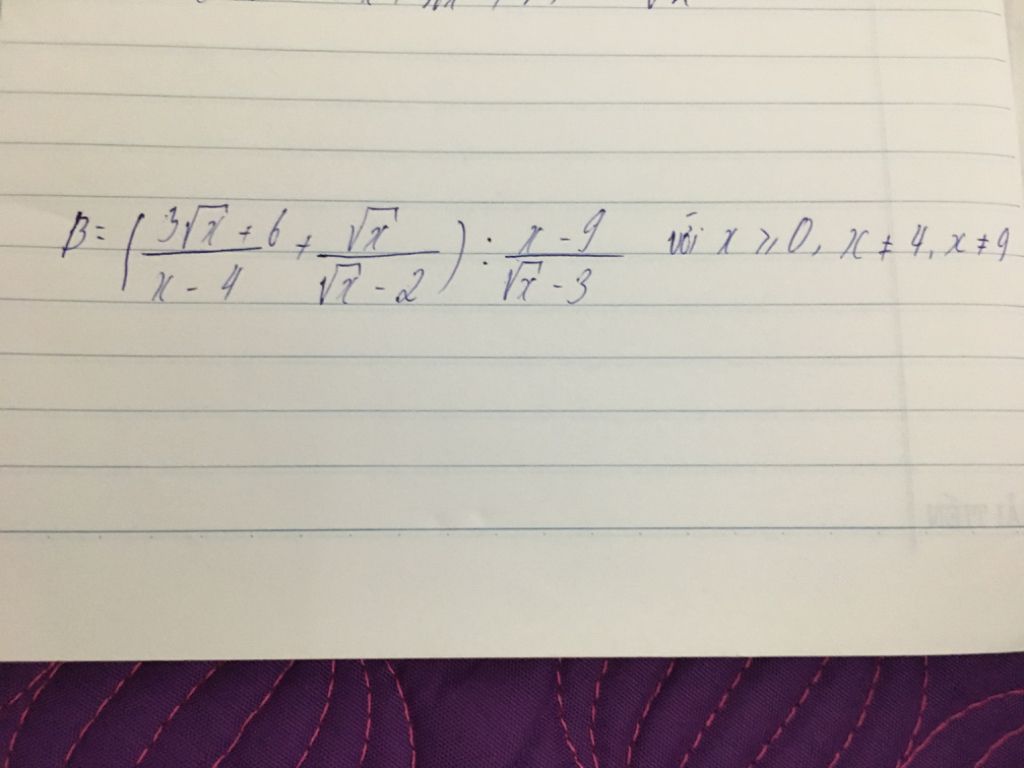 B = ( (3√x + 6)/(x - 4) + √x/(√x - 2) ) : (x - 9)/(√x - 3) với x ⩾ 0, x ≠ 4, x ≠ 9